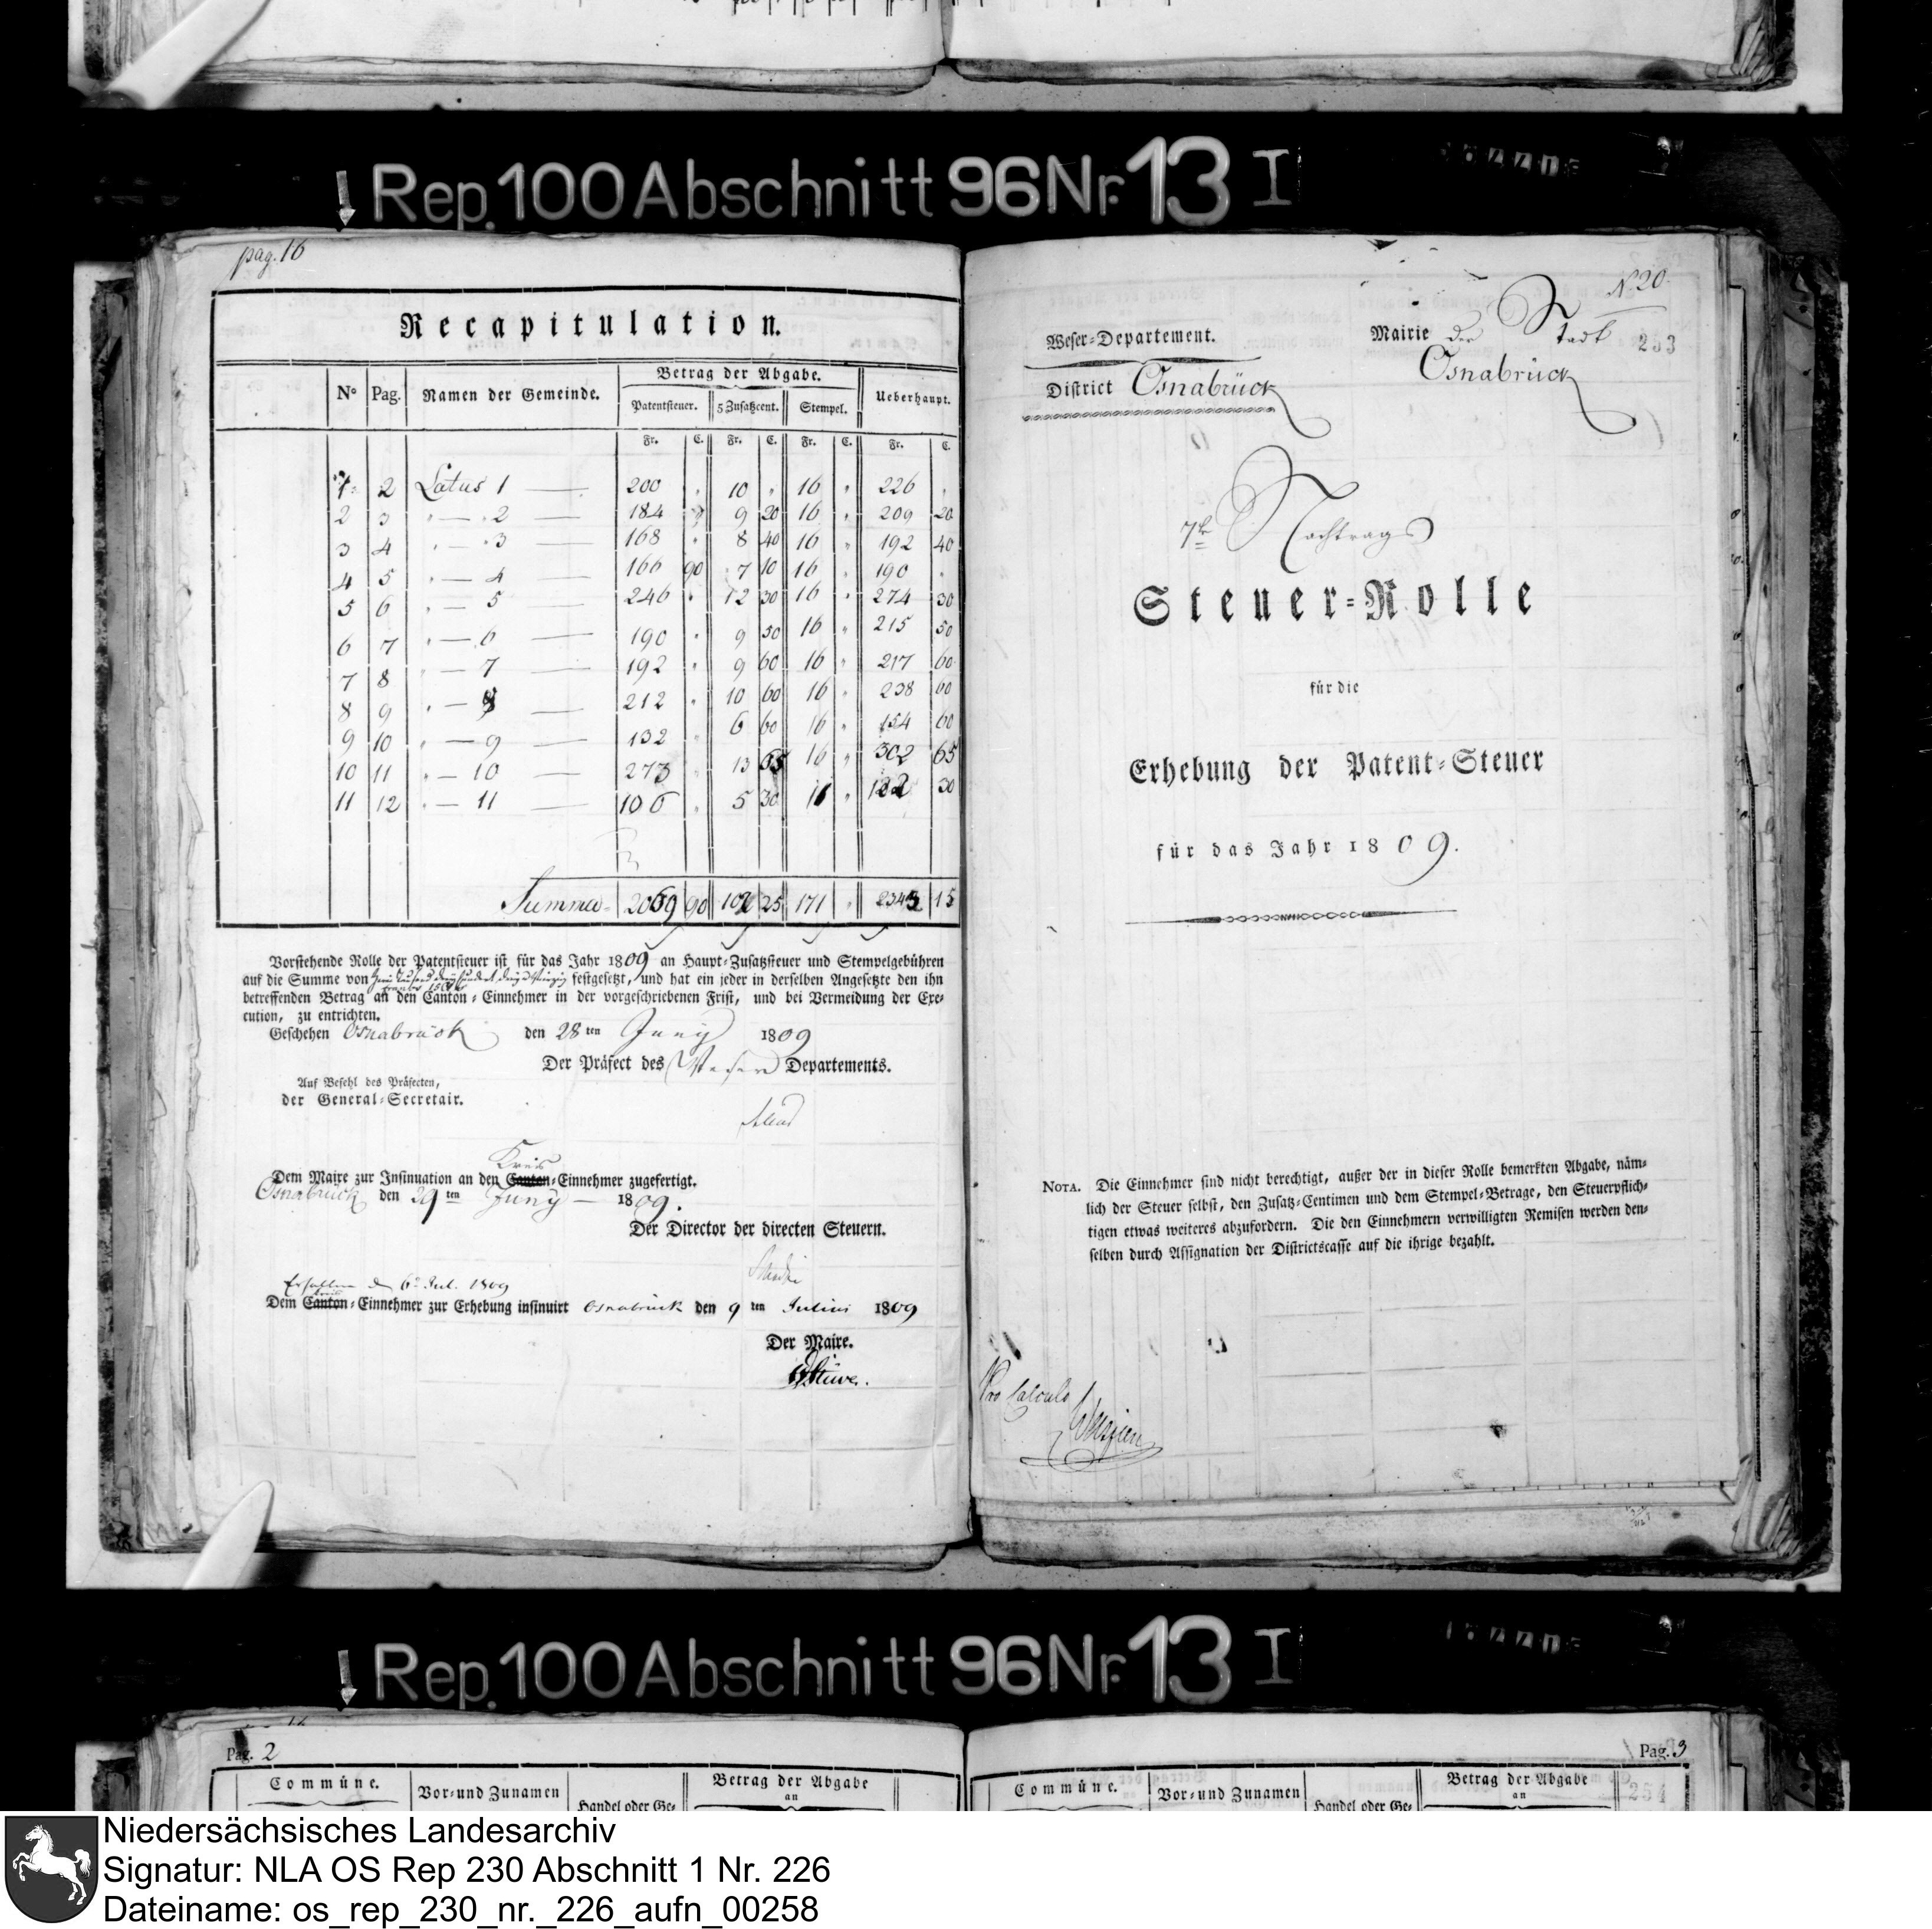 Rep. 100 Abschnitt 96 Nr. 13 I
pag. 16
Recapitulation.
No Pag. Namen der Gemeinde. Betrag der Abgabe. Ueberhaupt.
Patentsteuer. 5 Zusatzcent. Stempel.
Fr. C. Fr. C. Fr. C. Fr. C.
1 2 Latus 1 — 200 " 10 " 16 " 226 "
2 3 " — 2 — 184 " 9 20 16 " 209 20
3 4 " — 3 — 168 " 8 40 16 " 192 40
4 5 " — 4 — 166 90 7 10 16 " 190 "
5 6 " — 5 — 246 " 12 30 16 " 274 30
6 7 " — 6 — 190 " 9 50 16 " 215 50
7 8 " — 7 — 192 " 9 60 16 " 217 60
8 9 " — 8 — 212 " 10 60 16 " 238 60
9 10 " — 9 — 132 " 6 60 16 " 154 60
10 11 " — 10 — 273 " 13 65 16 " 302 65
11 12 " — 11 — 106 " 5 30 11 " 122 30
Summa 2069 90 102 25 171 " 2343 15
Vorstehende Rolle der Patentsteuer ist für das Jahr 1809 an Haupt-Zusatzsteuer und Stempelgebühren
auf die Summe von festgesetzt, und hat ein jeder in derselben Angesetzte den ihn
betreffenden Betrag an den Canton-Einnehmer in der vorgeschriebenen Frist, und bei Vermeidung der Exe-
cution, zu entrichten.
Geschehen Osnabrück den 28ten Juny 1809
Der Präfect des Weser Departements.
Auf Befehl des Präfecten,
der General-Secretair.
Kreis
Dem Maire zur Insinuation an den Canton-Einnehmer zugefertigt.
Osnabrück den 29ten Juny — 1809.
Der Director der directen Steuern.
Erhalten d 6 Jul. 1809
Dem Canton-Einnehmer zur Erhebung insinuirt Osnabrück den 9ten Julius 1809
Der Maire.
Stüve.
N 20.
Weser-Departement.
Mairie der Stadt
Osnabrück
253
District Osnabrück
7te Nachtrags
Steuer-Rolle
für die
Erhebung der Patent-Steuer
für das Jahr 1809.
NOTA. Die Einnehmer sind nicht berechtigt, außer der in dieser Rolle bemerkten Abgabe, näm-
lich der Steuer selbst, den Zusatz-Centimen und dem Stempel-Betrage, den Steuerpflich-
tigen etwas weiteres abzufordern. Die den Einnehmern verwilligten Remisen werden den-
selben durch Assignation der Districtscasse auf die ihrige bezahlt.
Pro Calculo
Rep. 100 Abschnitt 96 Nr. 13 I
Pag. 2
Commüne. Vor- und Zunamen Handel oder Ge- Betrag der Abgabe
an
Pag. 3
Commüne. Vor- und Zunamen Handel oder Ge- Betrag der Abgabe
an
254
Niedersächsisches Landesarchiv
Signatur: NLA OS Rep 230 Abschnitt 1 Nr. 226
Dateiname: os_rep_230_nr._226_aufn_00258